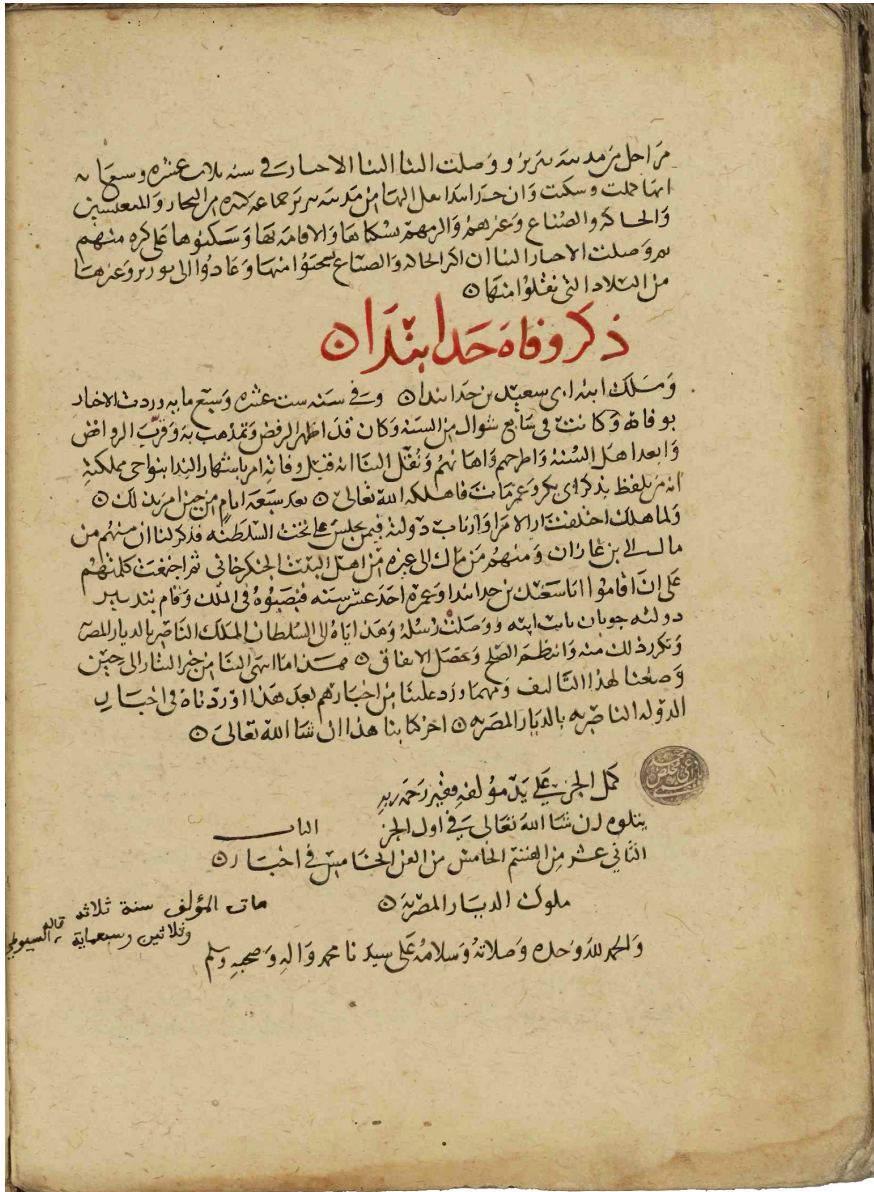 مراحل من مدينة تبريز ووصلت الينا الاخبار في سنة ثلاث عشرة وسبعماية
انها كملت وسكنت وان خدابندا نقل اليها من مدينة تبريز جماعة كثيرة من التجار والمتعيشين
والحاكة والصناع وغيرهم والزمهم بسكناها والاقامة بها وسكنوها على كره منهم
ثم وصلت الاخبار الينا ان اكثر الحاكة والصناع تسحبوا منها وعادوا الى توريز وغيرها
من البلاد التي نقلوا منها
ذكر وفاة خدابندا
وملك ابنه ابي سعيد بن خدابندا وفي سنة ست عشرة وسبع مايه وردت الاخبار
بوفاته وكانت في سابع شوال من السنة وكان قد اظهر الرفض وتمذهب به وقرب الروافض
وابعد اهل السنة واطرحهم واهانهم ونقل الينا انه قبل وفاته امر باشهار الندا بنواحي مملكته
انه من تلفظ بذكر ابي بكر وعمر مات فاهلكه الله تعالى بعد سبعة ايام من حين امر بذلك
ولما هلك اختلفت ارا الامرا وارباب دولته فيمن يجلس على تخت السلطنة فذكر لنا ان منهم من
مال الى ابن غازان ومنهم من مال الى غيره من اهل البيت الجنكزخاني ثم اجتمعت كلمتهم
على ان اقاموا ابا سعيد بن خدابندا وعمره احد عشر سنه فنصبوه في الملك وقام بتدبير
دولته جوبان نايب ابيه ووصلت رسله وهداياه الى السلطان الملك الناصر بالديار المصرية
وتكرر ذلك منه وانتظم الصلح وحصل الاتفاق فهذا ما انتهى الينا من خبر التتار الى حين
وضعنا لهذا التاليف ومهما ورد علينا من اخبارهم بعد هذا اوردناه في اخبار
الدولة الناصرية بالديار المصرية اخر كتابنا هذا ان شا الله تعالى
كمل الجزء على يد مؤلفه فقير رحمة ربه
يتلوه ان شا الله تعالى في اول الجز الباب
الثاني عشر من القسم الخامس من الفن الخامس في اخبار
ملوك الديار المصرية
مات المؤلف سنة ثلاثة
وثلاثين وسبعماية قاله السيوطي
والحمد لله وحده وصلاته وسلامه على سيدنا محمد واله وصحبه وسلم